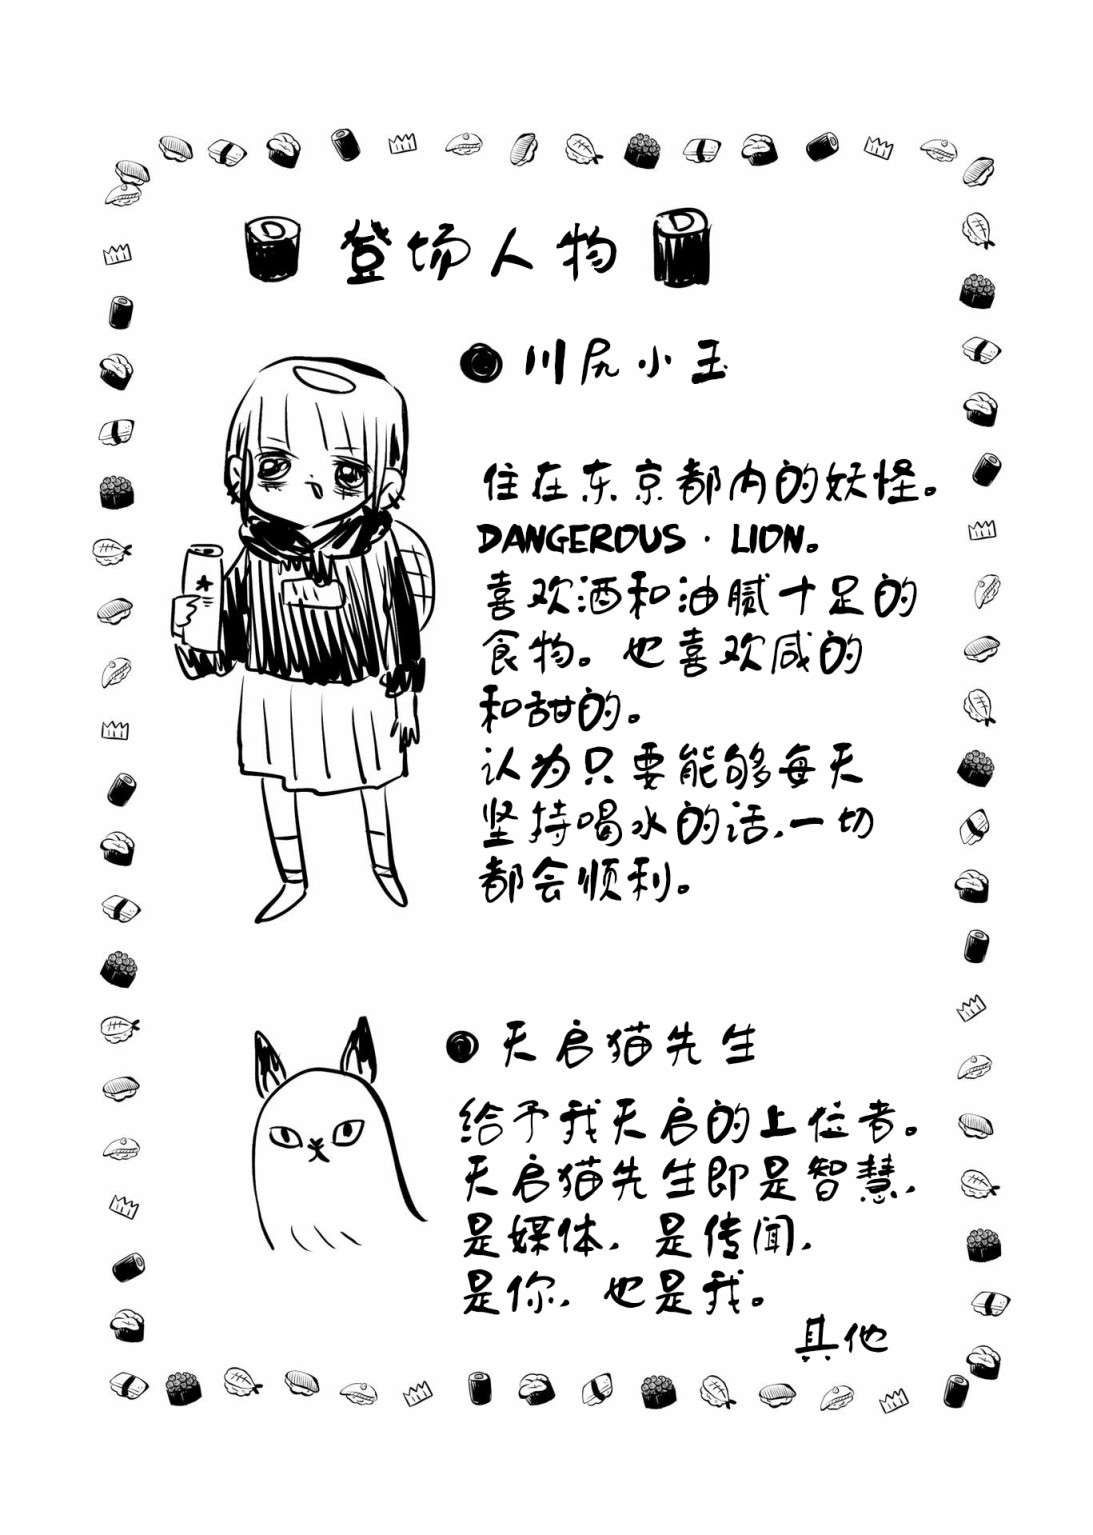 登场人物
川尻小玉
住在东京都内的妖怪。
DANGEROUS·LION。
喜欢酒和油腻十足的
食物。也喜欢咸的
和甜的。
认为只要能够每天
坚持喝水的话,一切
都会顺利。
天启猫先生
给予我天启的上位者。
天启猫先生即是智慧,
是媒体,是传闻,
是你,也是我。
其他